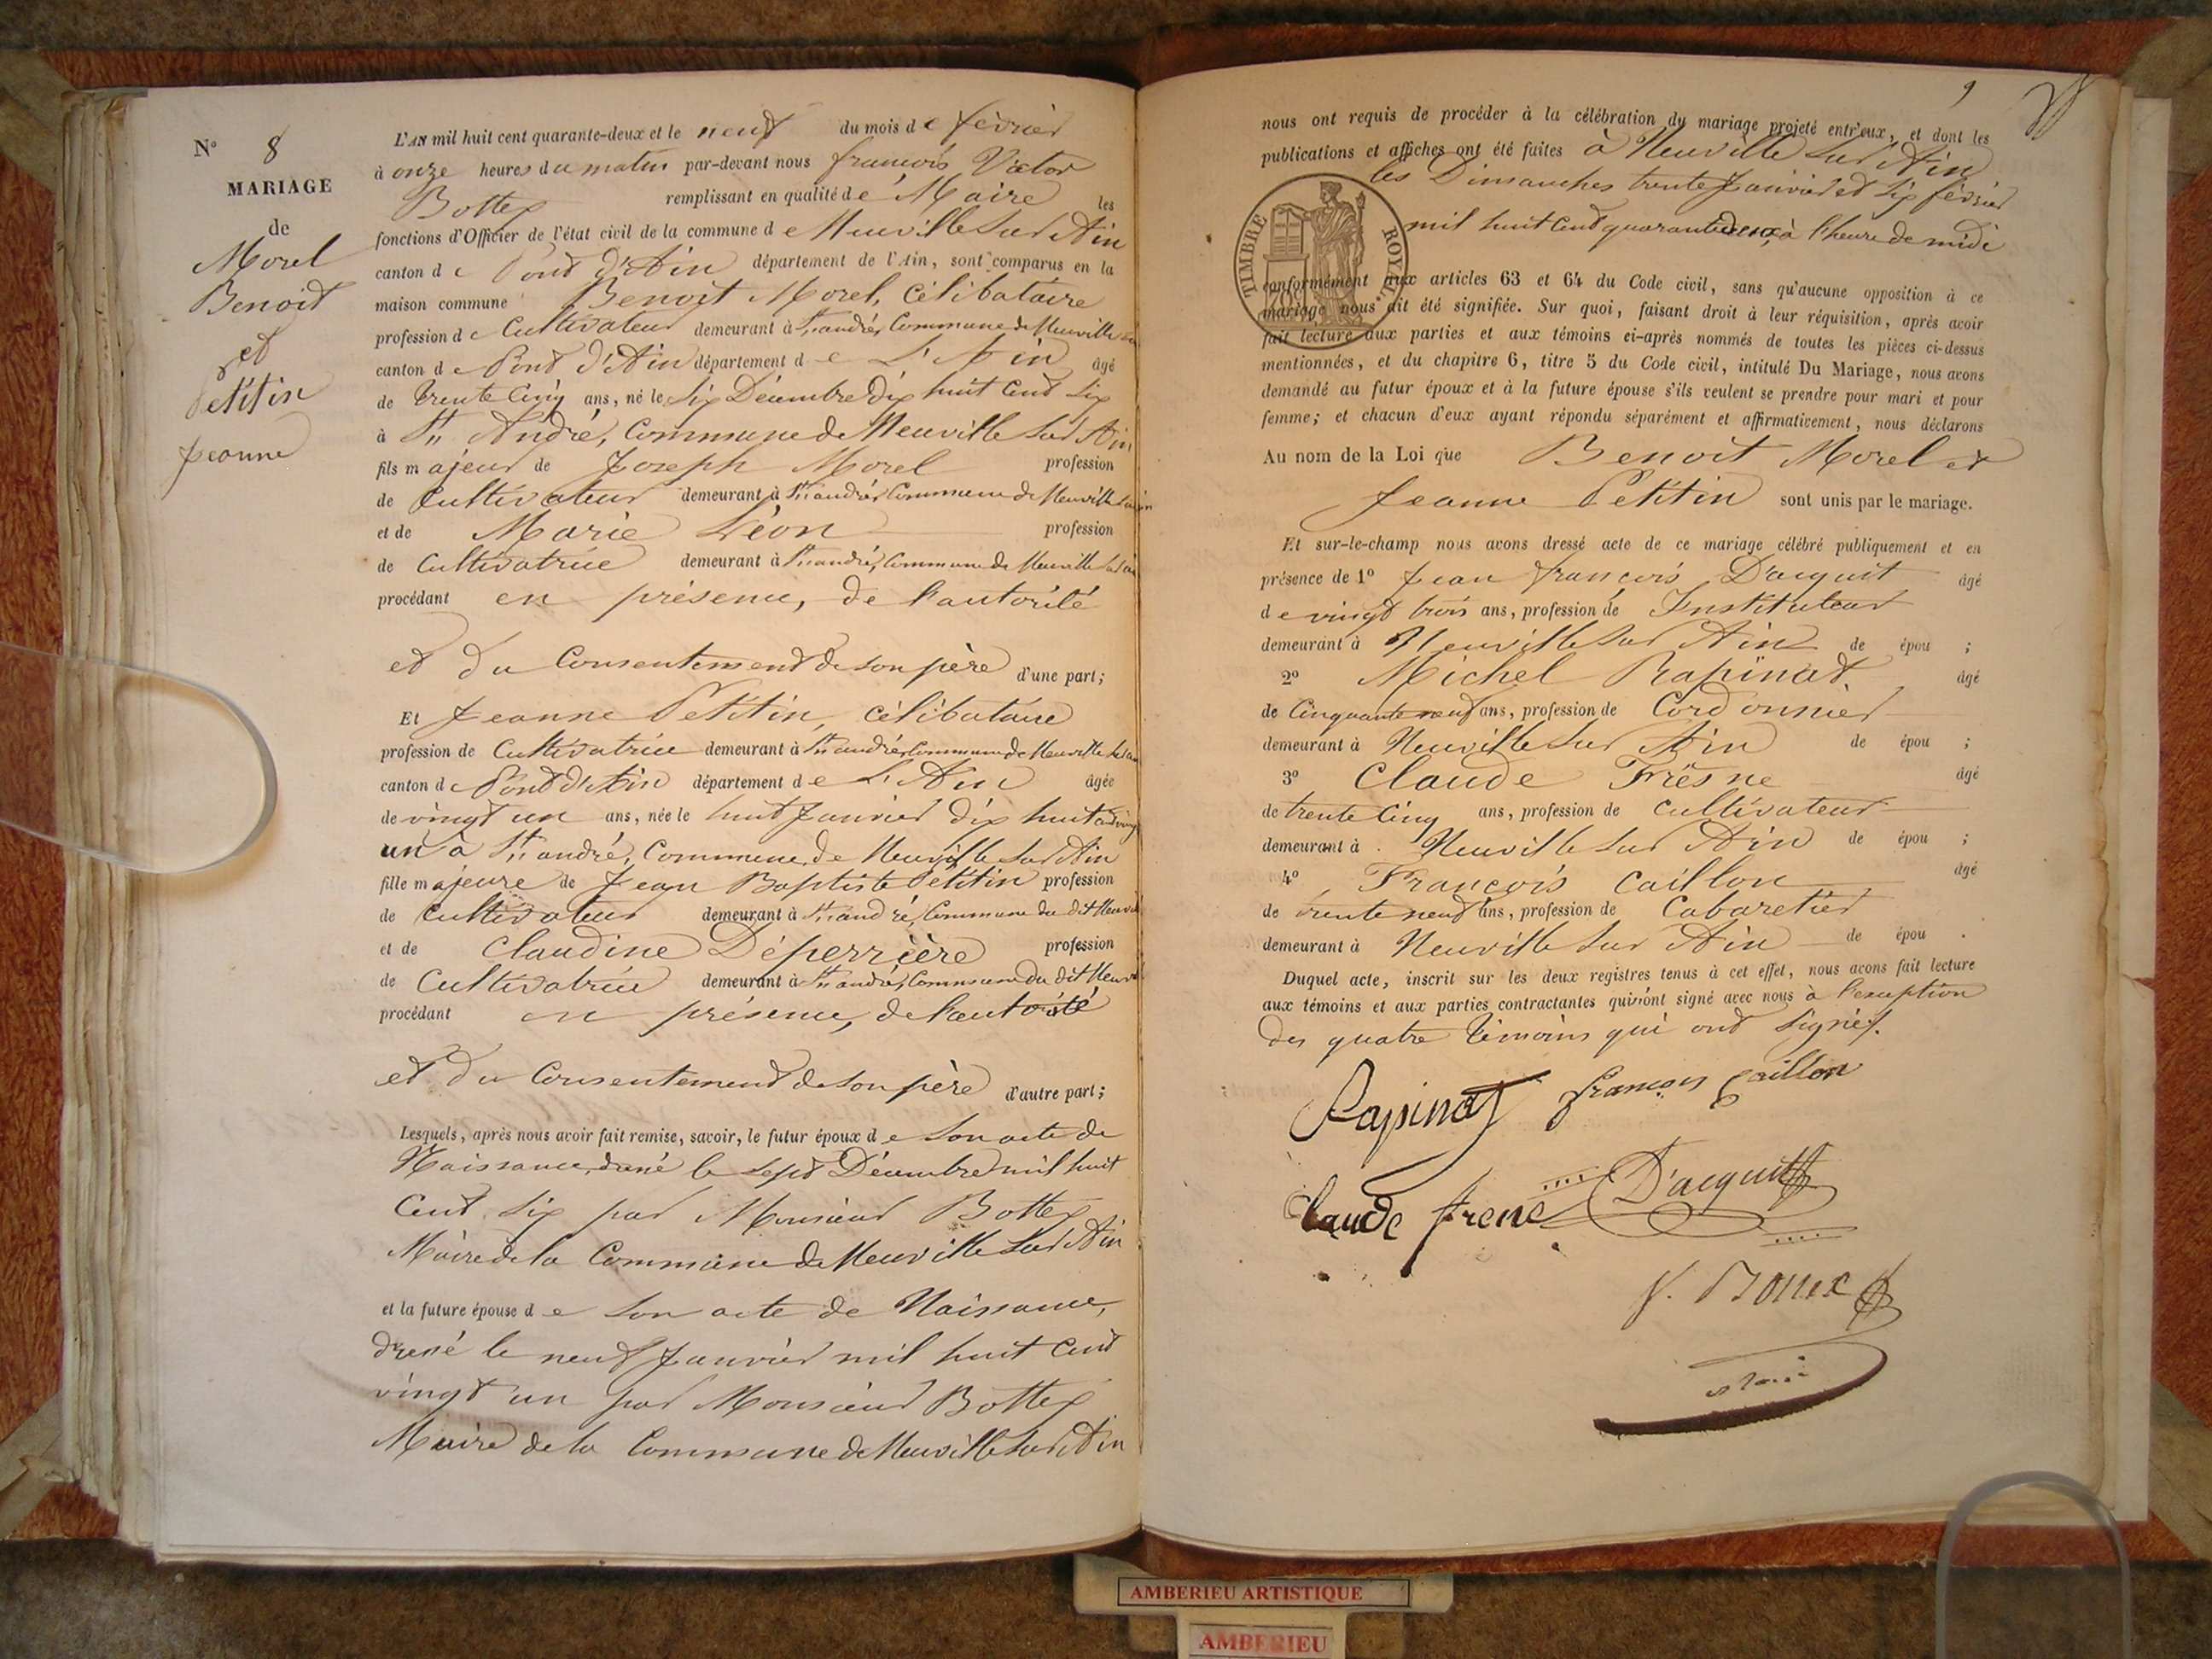 N° 8
MARIAGE
de
Morel
Benoit
et
Petitin
Jeanne
L'AN mil huit cent quarante-deux et le neuf du mois de février
à onze heures du matin par-devant nous françois Victor
Bottex remplissant en qualité de Maire les
fonctions d'Officier de l'état civil de la commune de Neuville sur Ain
canton de Pont d'Ain département de l'Ain, sont comparus en la
maison commune Benoit Morel, Célibataire
profession de Cultivateur demeurant à St andré, Commune de Neuville
canton de Pont d'Ain département de L'Ain âgé
de trente Cinq ans, né le Six Décembre dix huit Cent Six
à St André, Commune de Neuville sur Ain
fils majeur de Joseph Morel profession
de Cultivateur demeurant à St andré, Commune de Neuville
et de Marie Léon profession
de Cultivatrice demeurant à St andré, Commune de Neuville
procédant en présence, de l'autorité
et du Consentement de son père d'une part;
Et Jeanne Petitin, célibataire
profession de Cultivatrice demeurant à St andré, Commune de Neuville
canton de Pont d'Ain département de L'Ain âgée
de vingt un ans, née le huit Janvier dix huit cent vingt
un à St andré, Commune de Neuville sur Ain
fille majeure de Jean Baptiste Petitin profession
de Cultivateur demeurant à St andré, Commune du dit Neuville
et de Claudine Déperrière profession
de Cultivatrice demeurant à St andré, Commune du dit Neuville
procédant en présence, de l'autorité
et du Consentement de son père d'autre part;
Lesquels, après nous avoir fait remise, savoir, le futur époux de son acte de
Naissance, dréné le sept Décembre mil huit
Cent Six par Monsieur Bottex
Maire de la Commune de Neuville sur Ain
et la future épouse de son acte de Naissance,
dressé le neuf Janvier mil huit Cent
vingt un par Monsieur Bottex
Maire de la Commune de Neuville sur Ain
9
nous ont requis de procéder à la célébration du mariage projeté entr'eux, et dont les
publications et affiches ont été faites à Neuville sur Ain
les Dimanches trente Janvier et Six février
mil huit Cent quarante deux, à l'heure de midi
TIMBRE ROYAL
conformément aux articles 63 et 64 du Code civil, sans qu'aucune opposition à ce
mariage nous ait été signifiée. Sur quoi, faisant droit à leur réquisition, après avoir
fait lecture aux parties et aux témoins ci-après nommés de toutes les pièces ci-dessus
mentionnées, et du chapitre 6, titre 5 du Code civil, intitulé Du Mariage, nous avons
demandé au futur époux et à la future épouse s'ils veulent se prendre pour mari et pour
femme; et chacun d'eux ayant répondu séparément et affirmativement, nous déclarons
Au nom de la Loi que Benoit Morel et
Jeanne Petitin sont unis par le mariage.
Et sur-le-champ nous avons dressé acte de ce mariage célébré publiquement et en
présence de 1° Jean françois D'acquit âgé
de vingt trois ans, profession de Instituteur
demeurant à Neuville sur Ain de épou ;
2° Michel Rapinat âgé
de Cinquante neuf ans, profession de Cordonnier
demeurant à Neuville sur Ain de épou ;
3° Claude Frësne âgé
de trente Cinq ans, profession de cultivateur
demeurant à Neuville sur Ain de épou ;
4° François caillon âgé
de trente neuf ans, profession de Cabaretier
demeurant à Neuville sur Ain de épou .
Duquel acte, inscrit sur les deux registres tenus à cet effet, nous avons fait lecture
aux témoins et aux parties contractantes qui n'ont signé avec nous à l'exception
des quatre témoins qui ont signés.
Rapinat françois Caillon
D'acquit
Claude frene
V. Bottex
AMBERIEU ARTISTIQUE
AMBERIEU